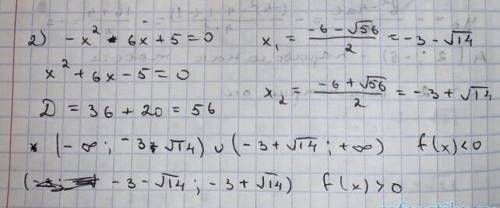 2) -x² - 6x + 5 = 0
x² + 6x - 5 = 0
D = 36 + 20 = 56
x₁ = (-6 - √56)/2 = -3 - √14
x₂ = (-6 + √56)/2 = -3 + √14
(-∞ ; -3 - √14) ∪ (-3 + √14 ; +∞) f(x) < 0
( -3 - √14 ; -3 + √14) f(x) > 0